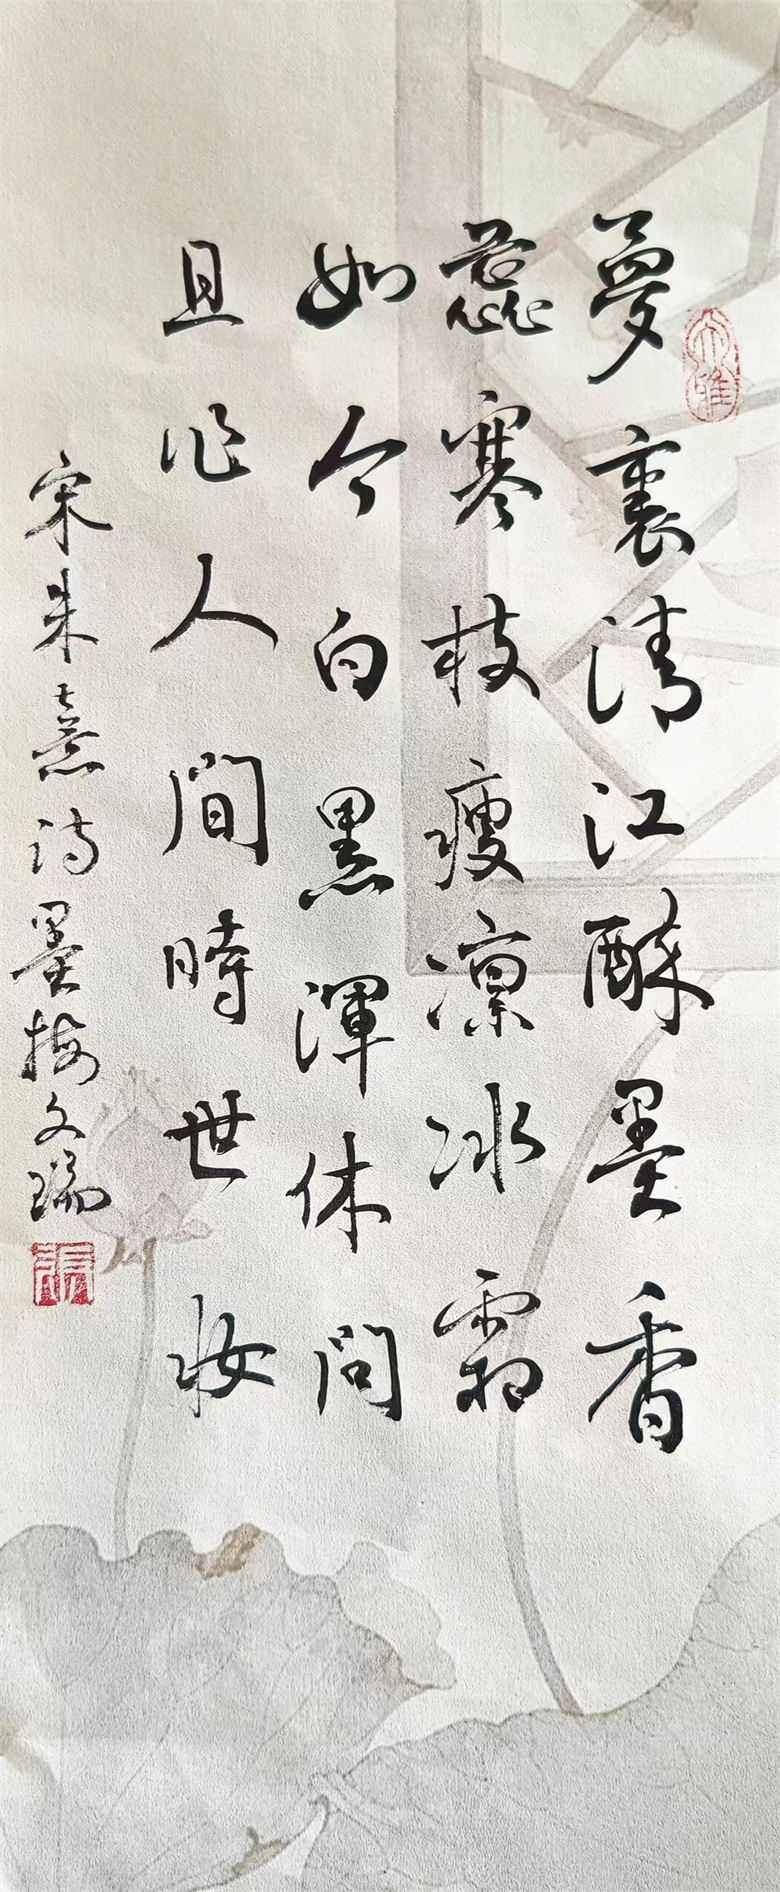 夢裏清江醉墨香
蕊寒枝瘦凛冰霜
如今白黑渾休問
且作人間時世妆
宋朱熹诗墨梅文瑞
大雅
張